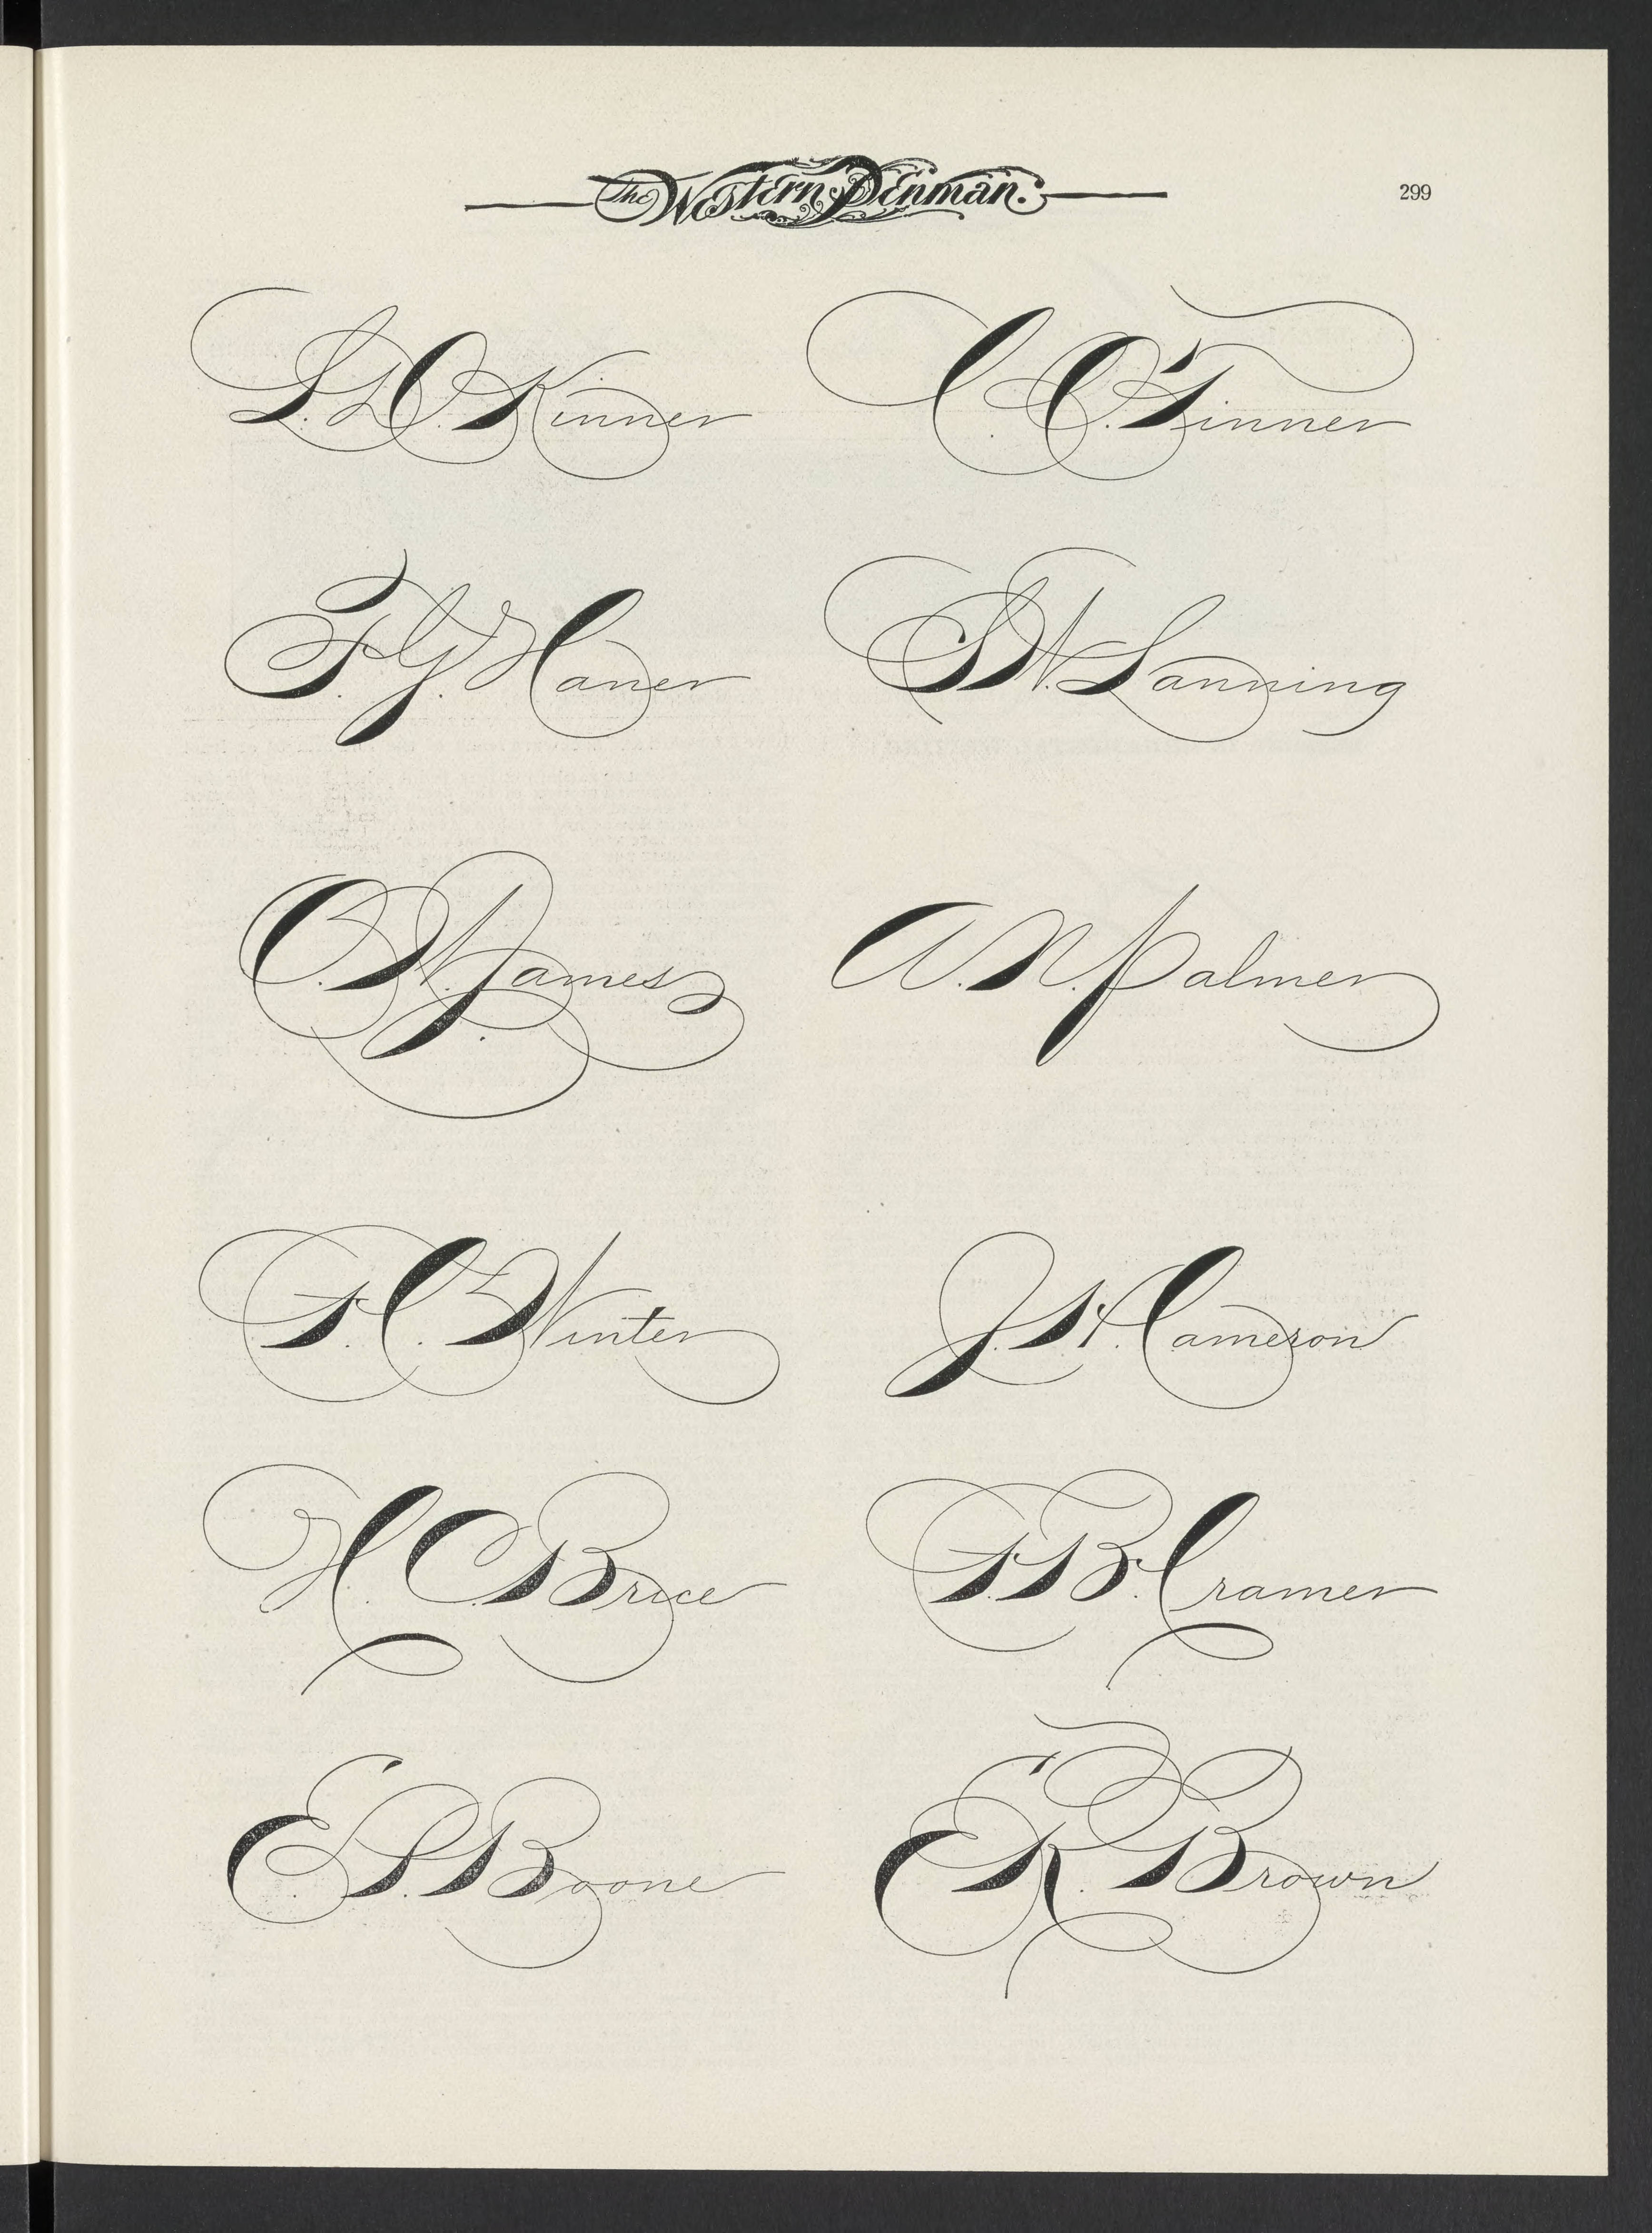 The Western Penman. 299
L. D. Kinner C. C. Finner
F. G. Haner S. W. Lanning
C. W. James A. N. Palmer
F. C. Winter J. H. Cameron
H. C. Brice F. B. Cramer
E. S. Boone E. R. Brown